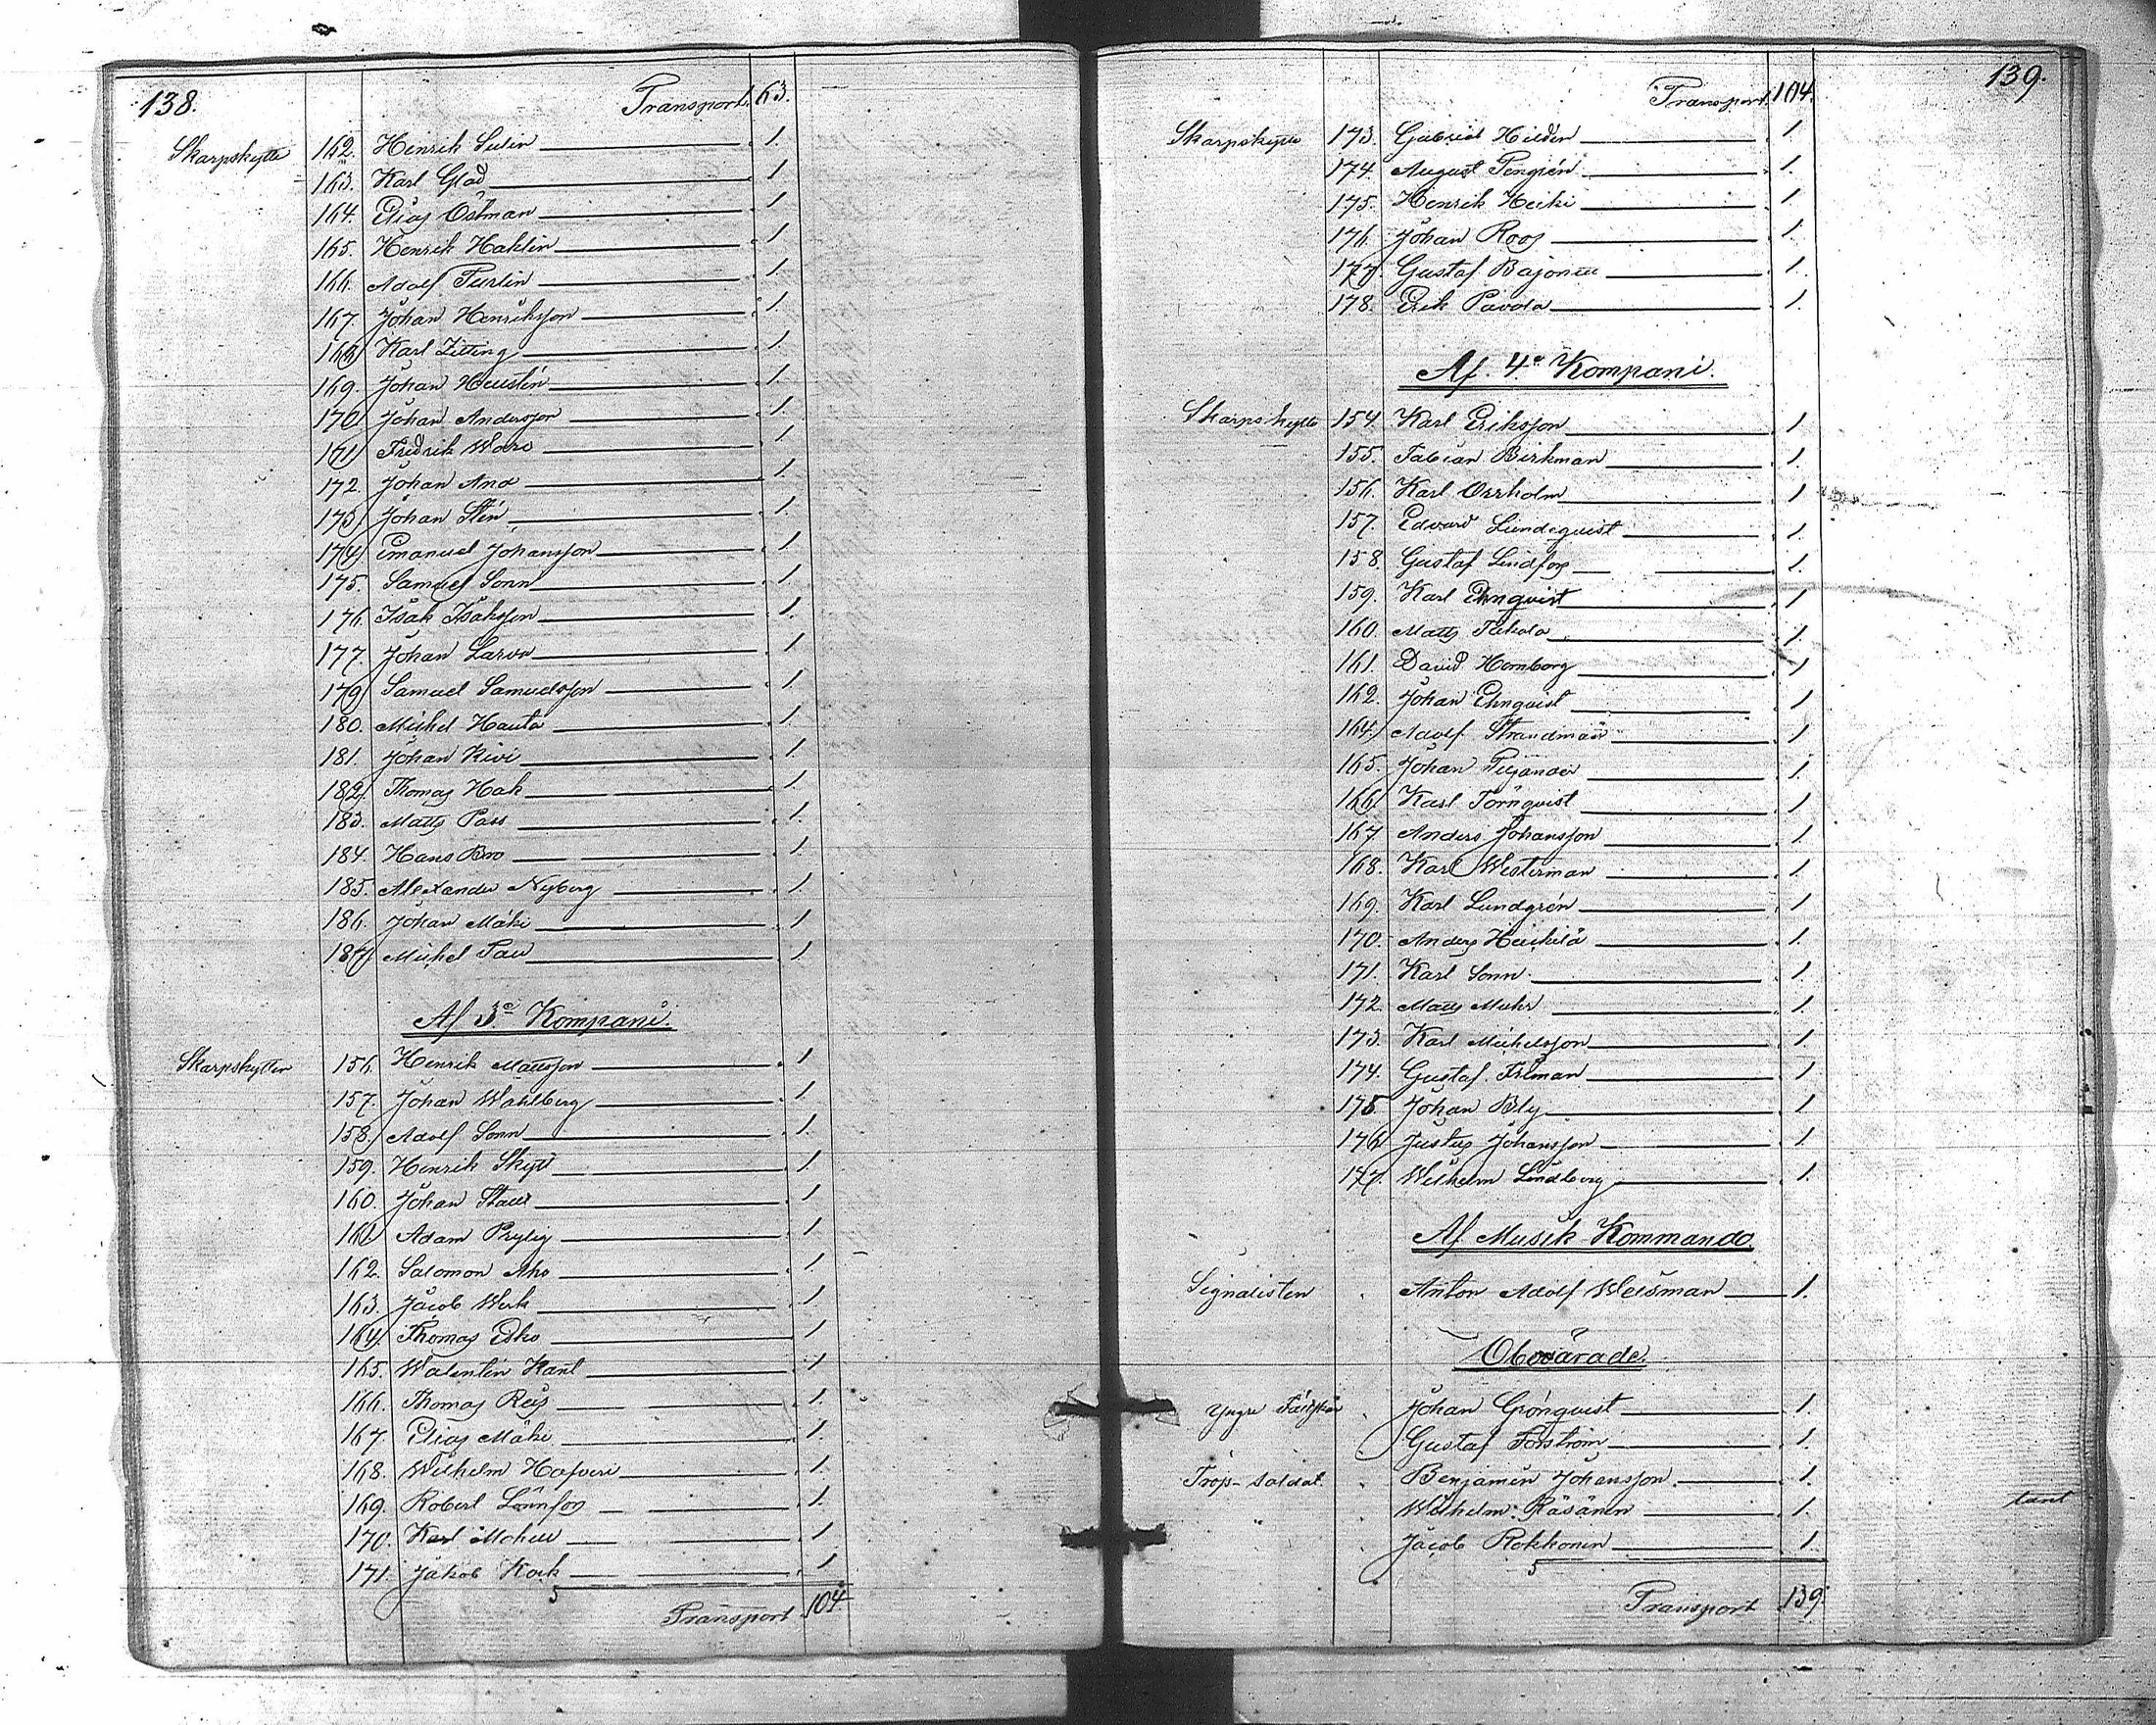 138.
Transport. 63.
Skarpskytte 162. Henrik Sulin 1.
163. Karl Glad 1
164. Elias Östman 1.
165. Henrik Haklin 1.
166. Adolf Turlin 1.
167. Johan Henriksson 1.
168 Karl Zitting 1.
169. Johan Heustén 1.
170 Johan Andersson 1.
171 Fredrik Ware 1.
172. Johan And 1.
173 Johan Stén 1.
174 Emanuel Johansson 1.
175. Samuel Sonn 1.
176. Isak Isaksson 1.
177 Johan Larva 1
179 Samuel Samuelsson 1.
180. Mickel Hauta 1.
181. Johan Kivi 1.
182. Thomas Hak 1.
183. Matts Pass 1.
184. Hans Bro 1.
185. Alexander Nyberg 1.
186. Johan Mäki 1
187 Mickel Taw 1
Af 3e Kompani.
Skarpskytten 156. Henrik Mattsson 1.
157. Johan Wahlberg 1
158. Adolf Sonn 1.
159. Henrik Skytt 1
160. Johan Staur 1
161. Adam Prylig 1
162. Salomon Aho 1
163. Jacob Werk 1
164. Thomas Esko 1
165. Walentin Kant 1
166. Thomas Reis 1.
167. Elias Mäki 1.
168. Wilhelm Hafveri 1.
169. Robert Lönnfors 1.
170. Karl Mohell 1
171. Jakob Kock 1
5
Transport. 104
139.
Transport. 104.
Skarpskytte 173. Gabriel Hildén 1.
174. August Tengrén 1.
175. Henrik Heiki 1.
176. Johan Roos 1.
177 Gustaf Bajonett 1.
178. Erik Pavola 1.
Af. 4e Kompani.
Skarpskytte 154. Karl Eriksson 1
155. Fabian Birkman 1.
156. Karl Orrholm 1
157. Edvard Lundeqvist 1
158. Gustaf Lindfors 1.
159. Karl Ehnqvist 1
160. Matts Tukala 1.
161. David Homborg 1
162. Johan Ehnqvist 1
164. Adolf Strandman 1
165. Johan Pijander 1
166. Karl Törnqvist 1
167. Anders Johansson 1.
168. Karl Westerman 1
169. Karl Lundgrén 1
170. Anders Heickilä 1.
171. Karl Sonn 1.
172. Matts Muhr 1
173. Karl Mickelsson 1
174. Gustaf. Friman 1
175 Johan Bly 1
176 Justus Johansson 1
177. Wilhelm Lindberg 1.
Af Musik-Kommando.
Signalisten Anton Adolf Weisman 1.
Obevärade.
Yngre Fältskär Johan Grönqvist 1
Gustaf Forström 1.
Trop-soldat. Benjamin Johansson. 1.
Wilhelm Räsänen 1.
Jacob Rokkonen 1.
5
Transport 139.